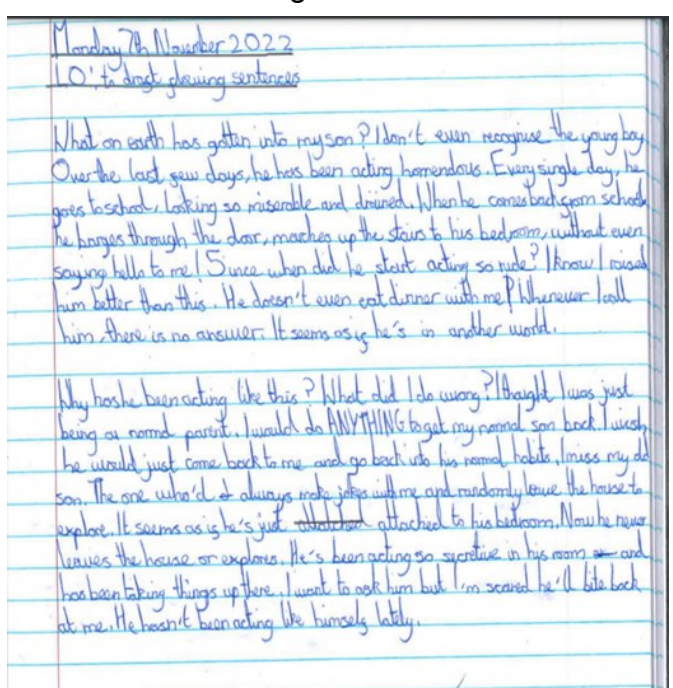 Monday 7th November 2022
LO: to draft flowing sentences
What on earth has gotten into my son? I don't even recognise the young boy.
Over the last few days, he has been acting horrendous. Every single day, he
goes to school, looking so miserable and drained. When he comes back from school
he barges through the door, marches up the stairs to his bedroom, without even
saying hello to me! Since when did he start acting so rude? I know I raised
him better than this. He doesn't even eat dinner with me! Whenever I call
him, there is no answer. It seems as if he's in another world.
Why has he been acting like this? What did I do wrong? I thought I was just
being a normal parent. I would do ANYTHING to get my normal son back. I wish
he would just come back to me and go back into his normal habits. I miss my old
son. The one who'd always make jokes with me and randomly leave the house to
explore. It seems as if he's just attached to his bedroom. Now he never
leaves the house or explores. He's been acting so secretive in his room and
has been taking things up there. I want to ask him but I'm scared he'll bite back
at me. He hasn't been acting like himself lately.